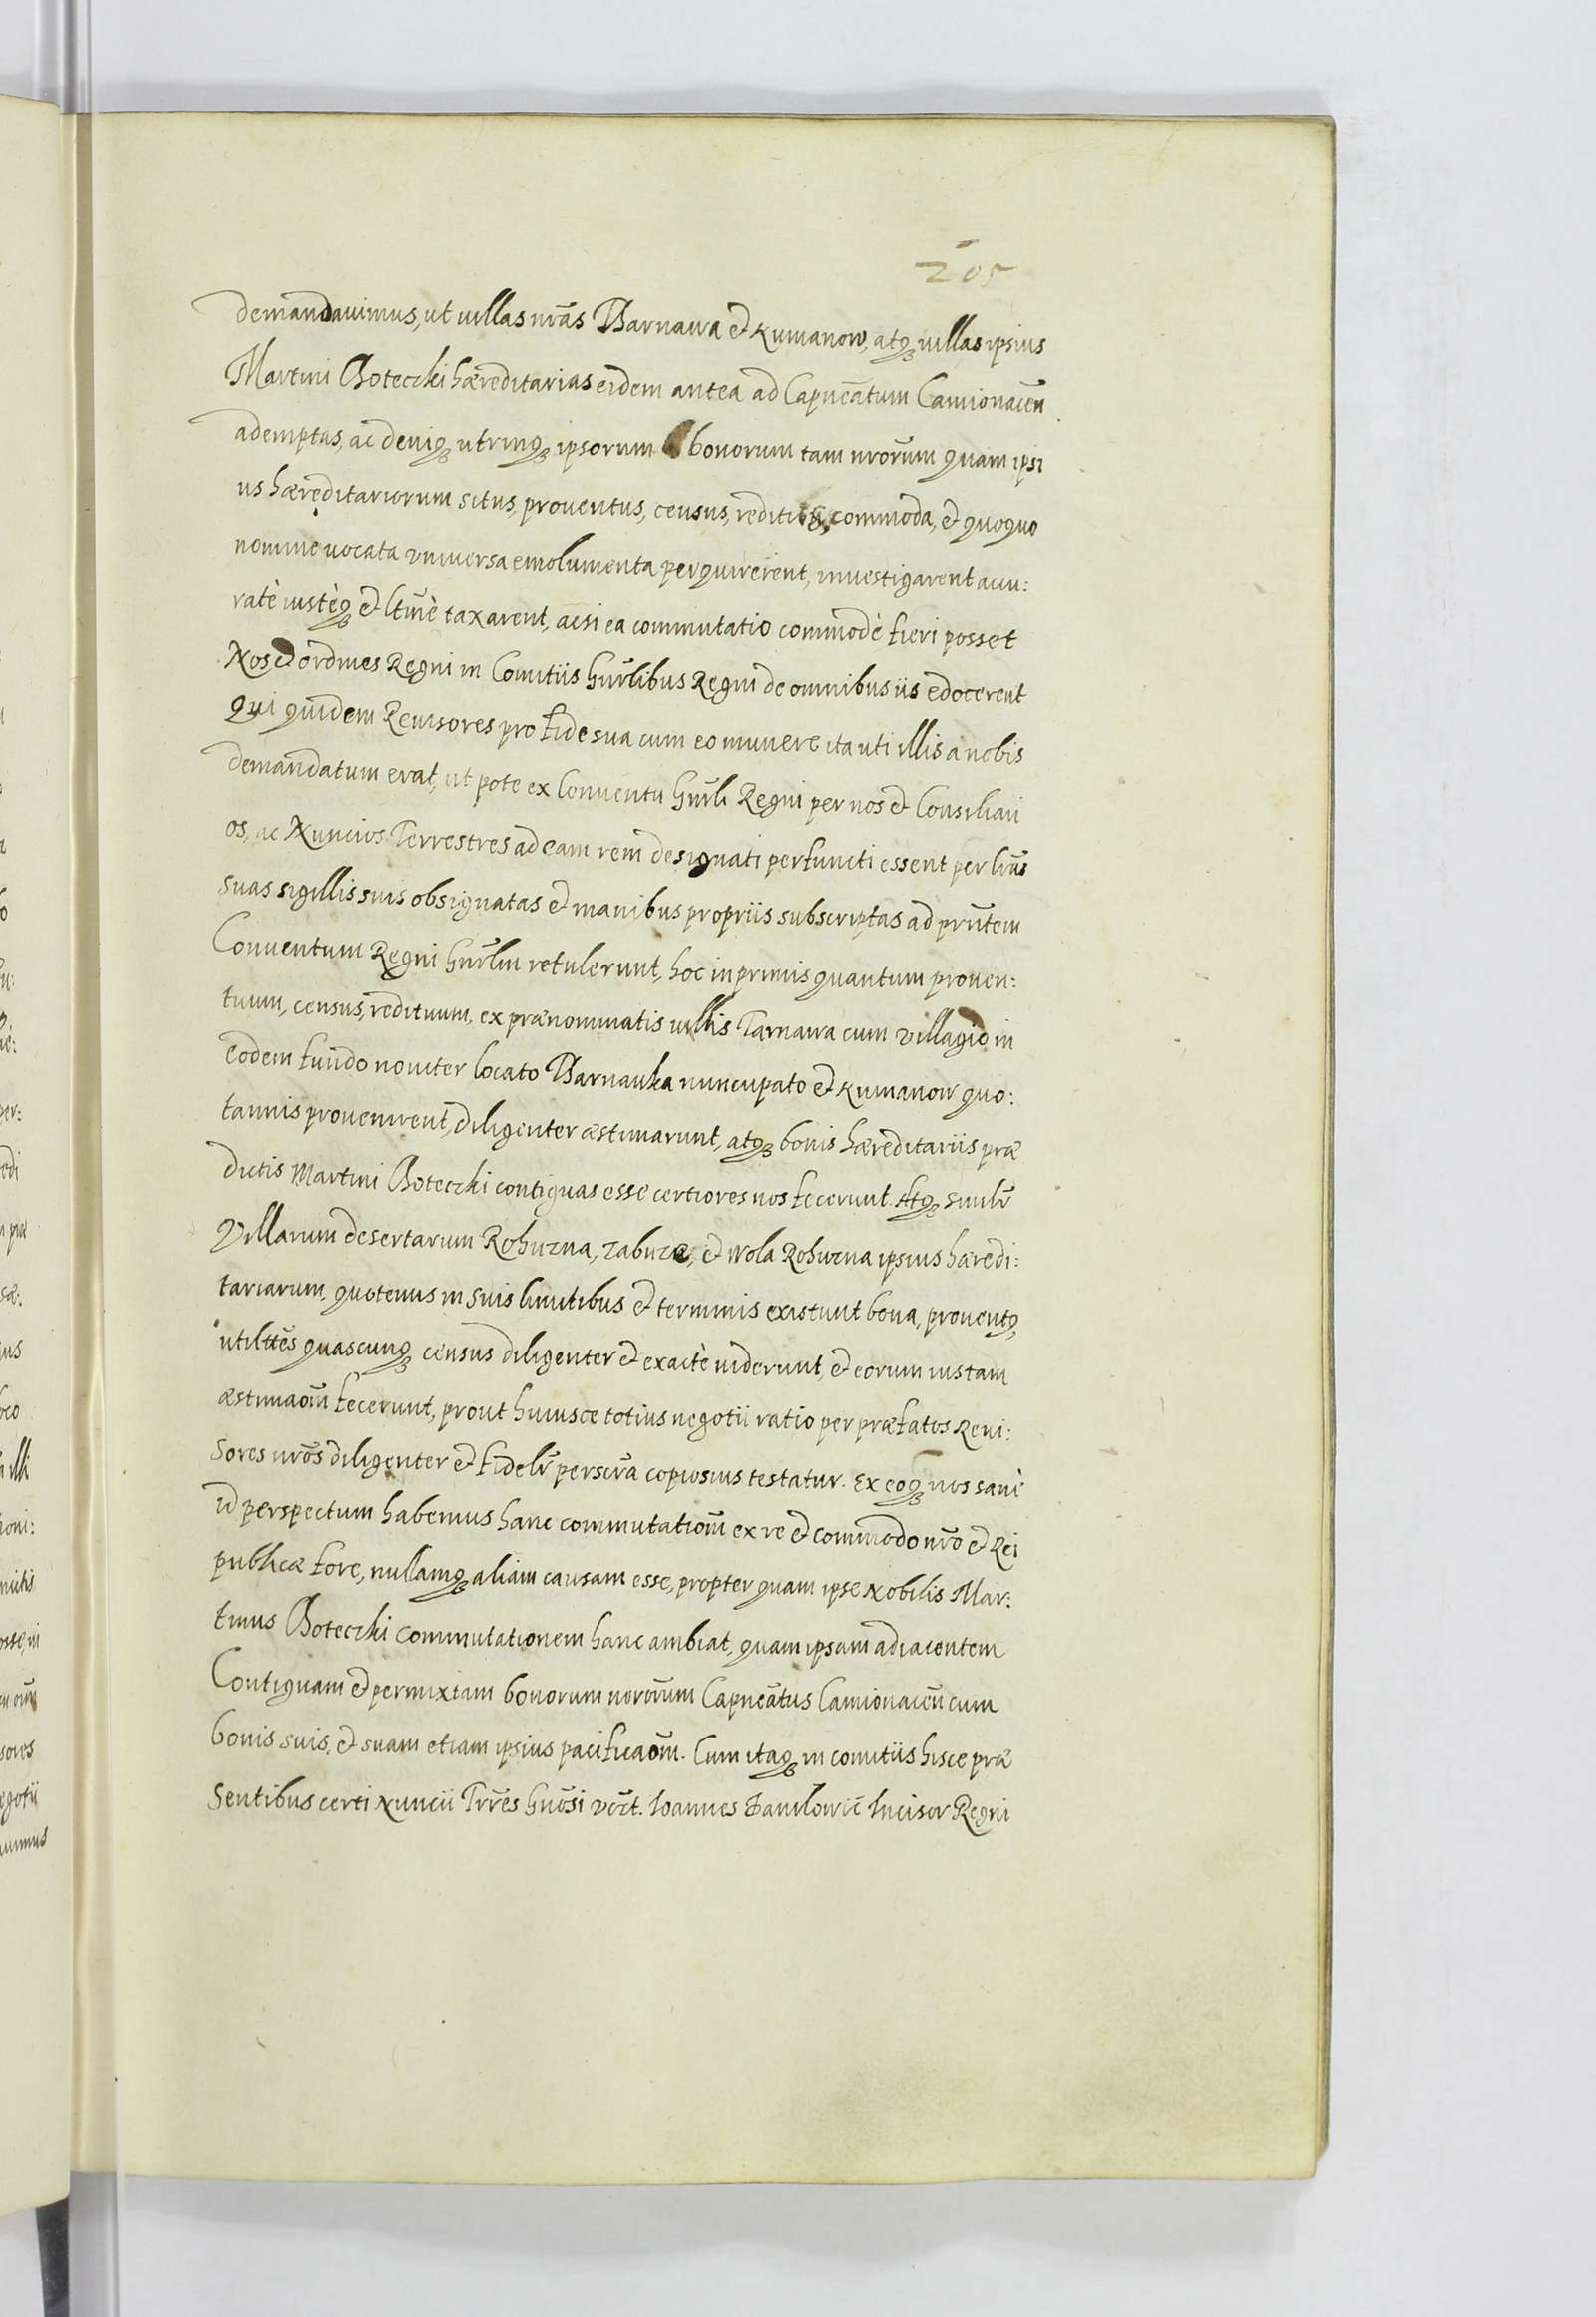 205
demandauimus, ut uillas nr̃as Tharnawa et Kumanow, atq3 uillas ipsius
Martini Boteczki hæreditarias eidem antea ad Capneatum Camionacen̄
ademptas, ac deniq3 utrinq3 ipsorum bonorum tam nrõrum quam ipsi
us hæreditariorum situs, prouentus, census, reditus, commoda, et quoquo
nomine uocata vniuersa emolumenta perquirerent, inuestigarent accu:
ratè iustèq3 et ltimè taxarent, ac si ea commutatio commodè fieri posset
Nos et ordines Regni in Comitiis Gnr̃libus Regni de omnibus iis edocerent
Qui quidem Reuisores pro fide sua cum eo munere ita uti illis a nobis
demandatum erat, ut pote ex Conuentu Gnr̃li Regni per nos et Consiliari
os, ac Nuncios Terrestres ad eam rem designati perfuncti essent per lr̃as
suas sigillis suis obsignatas et manibus propriis subscriptas ad prñtem
Conuentum Regni Gnr̃lm retulerunt, hoc inprimis quantum prouen:
tuum, census, redituum, ex prænominatis uillis Tarnawa cum villagio in
eodem fundo nouiter locato Tharnawka nuncupato et Kumanow quo:
tannis prouenirent, diligenter æstimarunt, atq3 bonis hæreditariis præ
dictis Martini Boteczki contiguas esse certiores nos fecerunt. Atq3 similr̃
Villarum desertarum Rohuzna, Zabuze, et Wola Rohuzna ipsius hæredi:
tariarum, quotenus in suis limitibus et terminis existunt bona, prouentq,
utilittẽs quascunq3 census diligenter et exactè uiderunt, et eorum iustam
æstimaom̃ fecerunt, prout huiusce totius negotii ratio per præfatos Reui:
sores nrõs diligenter et fidelr̃ perscrĩa copiosius testatur. Ex eoq3 nos sanè
id perspectum habemus hanc commutationẽ ex re et commodo nrõ et Rei
publicæ fore, nullamq3 aliam causam esse, propter quam ipse Nobilis Mar:
tinus Boteczki commutationem hanc ambiat, quam ipsam adiacentem
Contiguam et permixtam bonorum nrõrum Capneãtus Camionacen̄ cum
bonis suis, et suam etiam ipsius pacificaom̃. Cum itaq3 in comitiis hisce præ
sentibus certi Nuncii Trr̃es Gnõsi vczt. Ioannes Danilowic̃ Incisor Regni